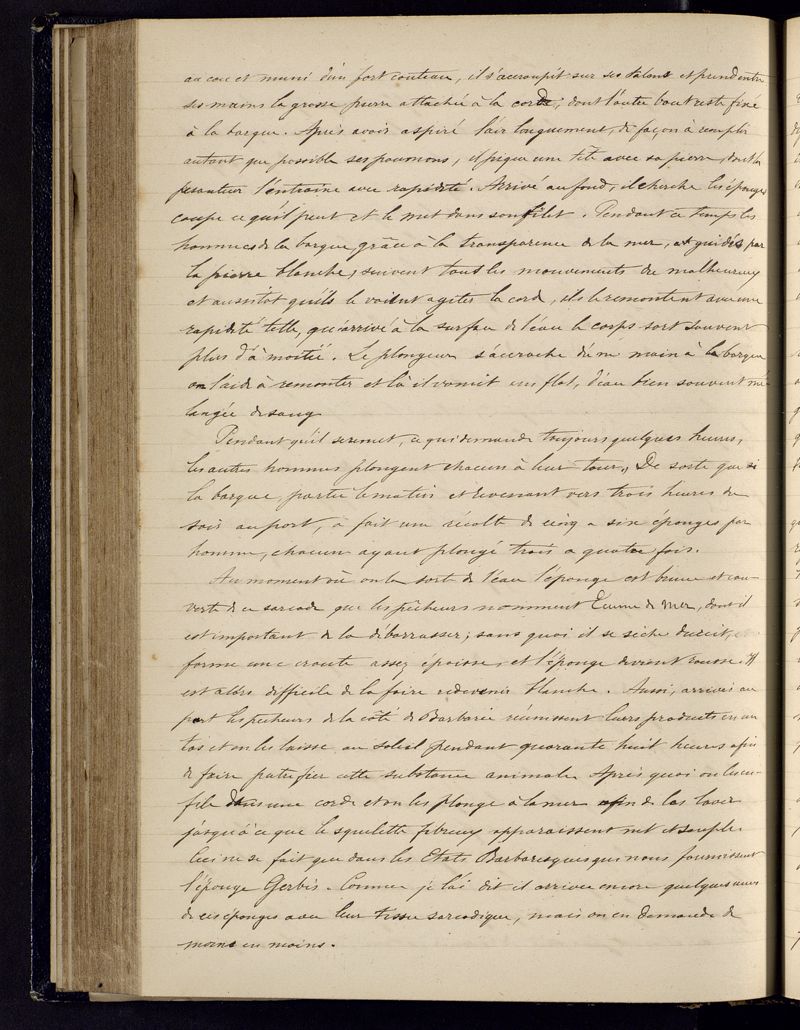 au cou et muni d'un fort couteau, il s'accroupit sur ses talons et prend entre
ses mains la grosse pierre attachée à la corde, dont l'autre bout reste fixé
à la barque. Après avoir aspiré l'air longuement, de façon à remplir
autant que possible ses poumons, il pique une tête avec sa pierre, dont la
pesanteur l'entraine avec rapidité. Arrivé au fond, il cherche les éponges
coupe ce qu'il peut et le met dans son filet. Pendant ce temps les
hommes de la barque, grâce à la transparence de la mer, et guidés par
la pierre blanche, suivent tout les mouvements du malheureux
et aussitôt qu'ils le voient agiter la corde, ils le remontent avec une
rapidité telle, qu'arrivé à la surface de l'eau le corps sort souvent
plus d'à moitié. Le plongeur s'accroche d'une main à la barque
on l'aide à remonter et là il vomit un flot, d'eau bien souvent mé-
langée de sang
Pendant qu'il se remet, ce qui demande toujours quelques heures,
les autres hommes plongent chacun à leur tour, De sorte que si
la barque, partie le matin et revenant vers trois heures du
soir au port, a fait une récolte de cinq a six éponges par
homme, chacun ayant plongé trois a quatre fois.
Au moment où on la sort de l'eau l'éponge est brune et cou-
verte de ce sarcode que les pêcheurs nomment Ecume de Mer, dont il
est important de la débarrasser; sans quoi il se sèche durcit,
forme une croute assez épaisse, et l'éponge devient rousse. Il
est alors difficile de la faire redevenir blanche. Aussi, arrivés au
port les pecheurs de la côte de Barbarie réunissent leurs produits en un
tas et on les laisse au soleil pendant quarante huit heures afin
de faire putrefier cette substance animale. Après quoi on les en-
file dans une corde et on les plonge à la mer afin de les laver
jusqu'à ce que le squelette fibreux apparaissent net et souple.
Ceci ne se fait que dans les Etats Barbaresques qui nous fournissent
l'éponge Gerbis. Comme je l'ai dit il arrive encore quelques unes
de ces éponges avec leur tissu sarcodique, mais on en demande de
moins en moins.